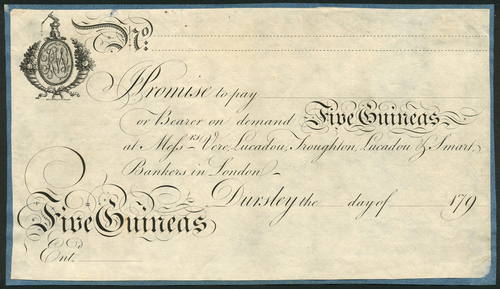 No:
I Promise to pay
or Bearer on demand Five Guineas
at Messrs. Vere, Lucadou, Troughton, Lucadou & Smart,
Bankers in London
Dursley the day of 179
Five Guineas
Ent.